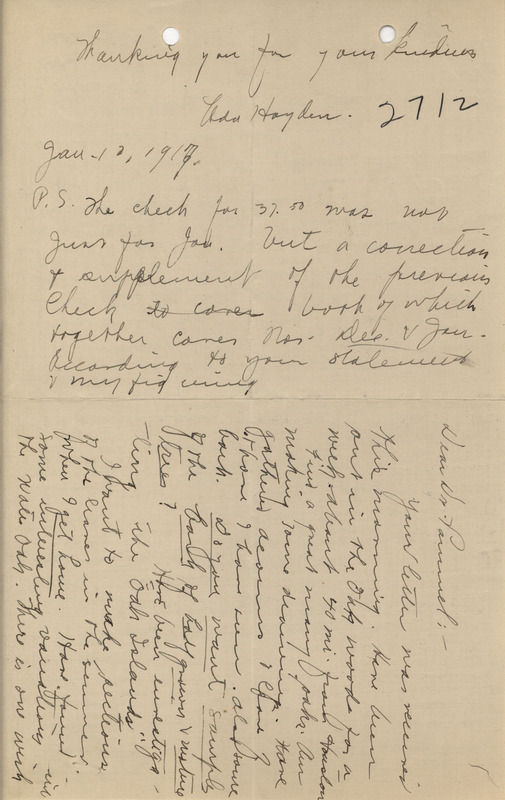 Thanking you for your kindness
Ada Hayden.
2712
Jan. 12, 1917.
P.S. The check for 37.50 was not
just for Jan. but a correction
& supplement of the previous
check to cover both of which
together cover Nov. Dec. & Jan.
according to your statement
& my figuring
Dear Dr Pammel:-
Your letter was received
this morning. Have been
out in the Oak woods for a
week about 40 mi. from Houston
Find a great many oaks. Am
making some drawings. Have
gathered acorns & leaves of
those I have seen. also some
bark. Do you want samples
of the bark of half grown & mature
trees? Have been investiga-
-ting the Oak Islands".
I want to make sections
of the leaves in the summer
when I get home. Have found
some interesting variations in
the Water Oak. There is one with